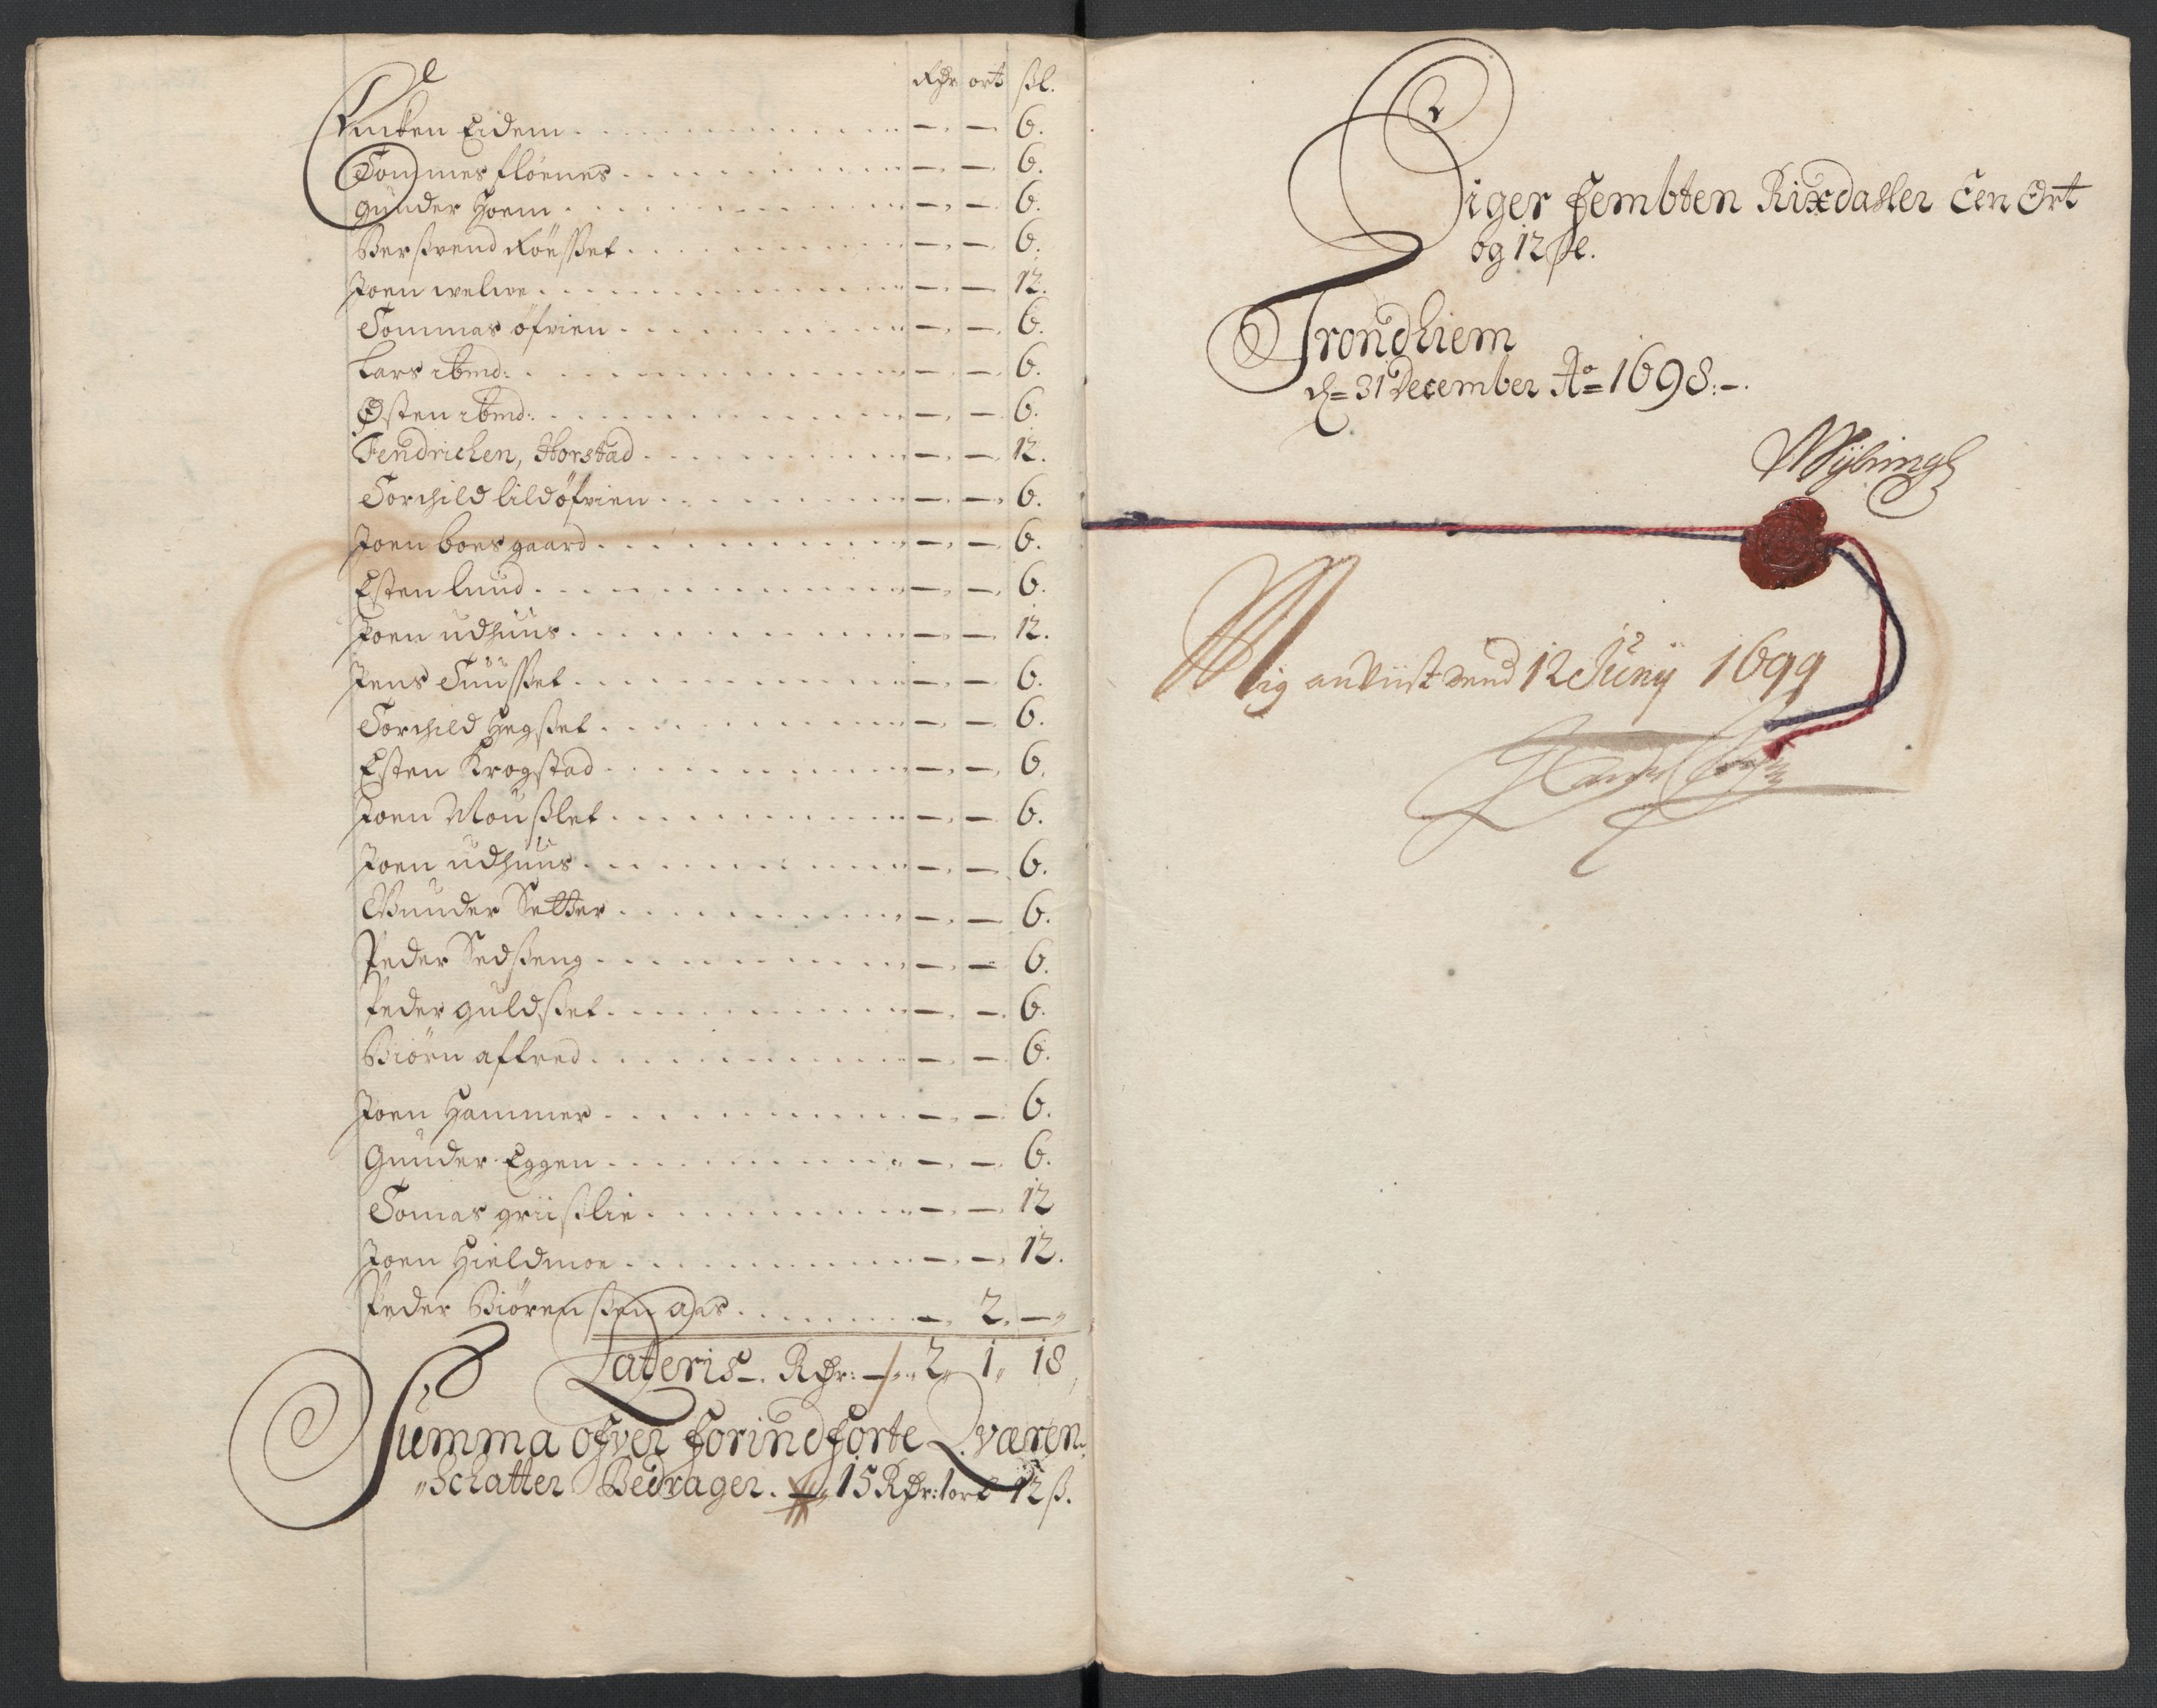 Rdr ort sl.
Encken Eidem — — 6.
Tommes fløenes — — 6.
gunder Hoem — — 6.
Bersvend Røesset — — 6.
Joen welwe — — 12.
Tommas øfvien — — 6.
Lars ibmd: — — 6.
Østen ibmd: — — 6.
Fendrichen, Horstad — — 12.
Torchild lildøfvien — — 6.
Joen boesgaard — — 6.
Esten lund — — 6.
Joen udhuus — — 12.
Jens Tuusset — — 6.
Torchild Hegset — — 6.
Esten Krogstad — — 6.
Joen Mouslet — — 6.
Joen udhuus — — 6.
Gunder Setter — — 6.
Peder Sedseng — — 6.
Peder guldset — — 6.
Biørn aftred — — 6.
Joen Hammer — — 6.
Gunder Eggen — — 6.
Tomas griislie — — 12
Joen Hieldmoe — — 12.
Peder Biørensen aas — 2. —
Lateris. Rdr: — 2 1 18
Summa ofver forindførte Qværen
Schatter Bedrager. — 15 Rdr: 1 ort 12 s.
Siger fembten Rixdaller Een Ort
og 12 sl.
Trondhiem
d= 31 December Ao= 1698.
Mig anviist dend 12 Juny 1699